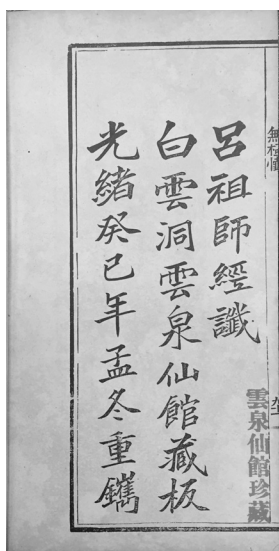 呂祖師經讖
白雲洞雲泉仙館藏板
光緒癸巳年孟冬重鐫
雲泉仙館珍藏